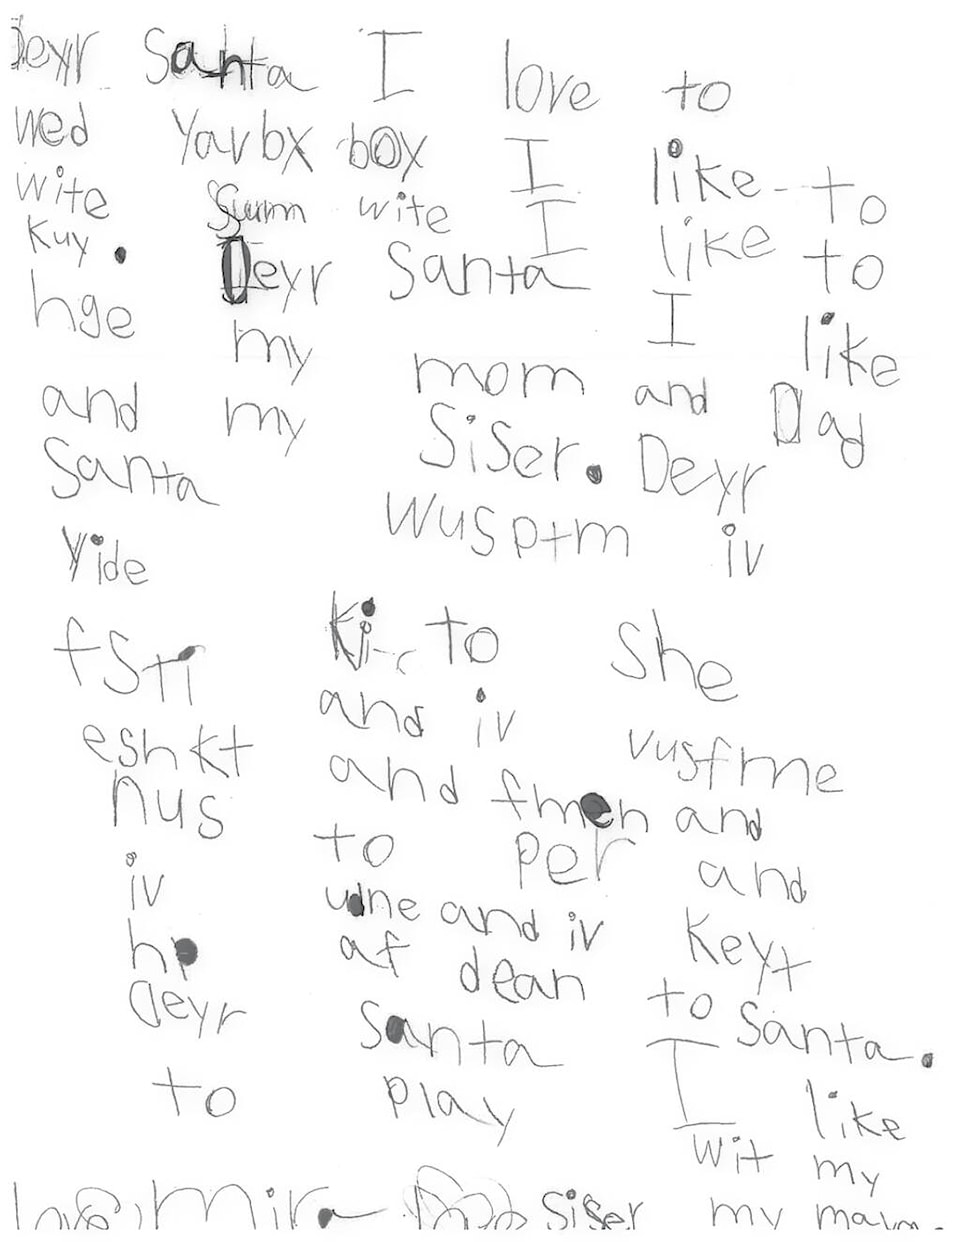 Deyr Santa I love to
wed Yavbx box I like to
wite Sumn wite I like to
Kuy. Deyr Santa I like
hge my mom and Dad
and my Siser. Deyr
Santa Wusptm iv
Yide to She
fsti and iv vusfme
eshkt and fmen and
nus to per and
iv une and iv Keyt
af dean to Santa.
Deyr Santa I like
to play wit my
love, Mira Siser my